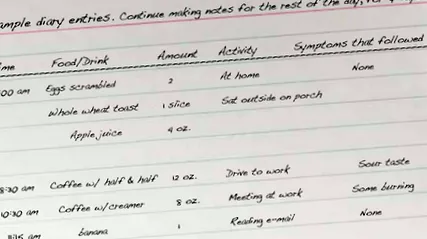 ample diary entries. Continue making notes for the rest of the day,
me Food/Drink Amount Activity Symptoms that followed
00 am Eggs scrambled 2 At home None
Whole wheat toast 1 slice Sat outside on porch
Apple juice 4 oz.
8:30 am Coffee w/ half & half 12 oz. Drive to work Sour taste
10:30 am Coffee w/creamer 8 oz. Meeting at work Some burning
banana 1 Reading e-mail None